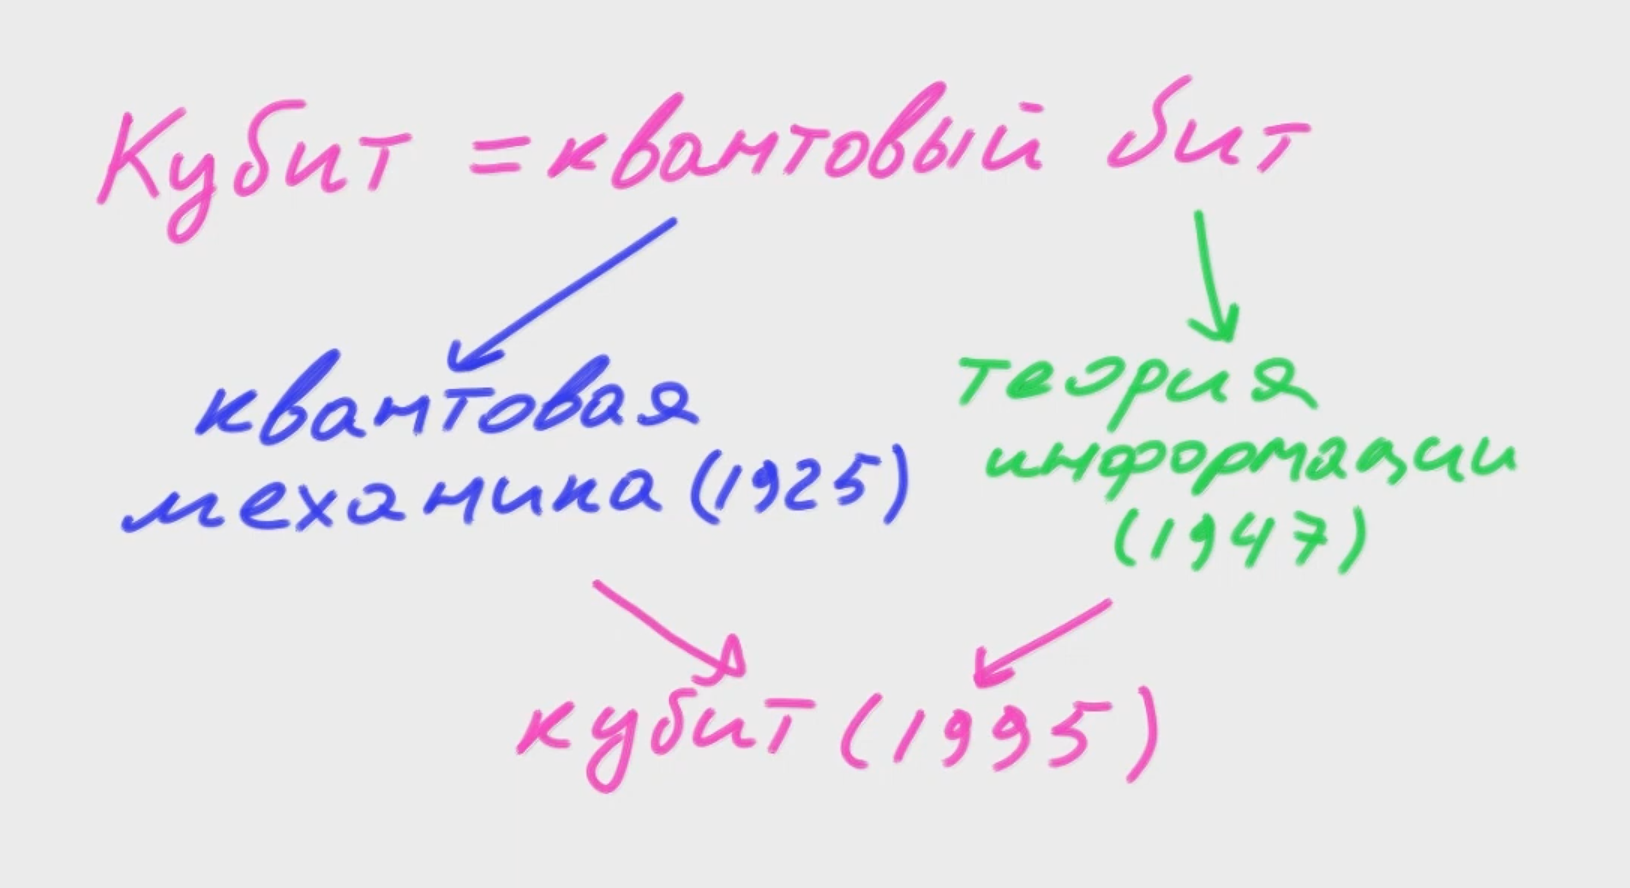 Кубит = квантовый бит
квантовая
механика (1925)
теория
информации
(1947)
кубит (1995)